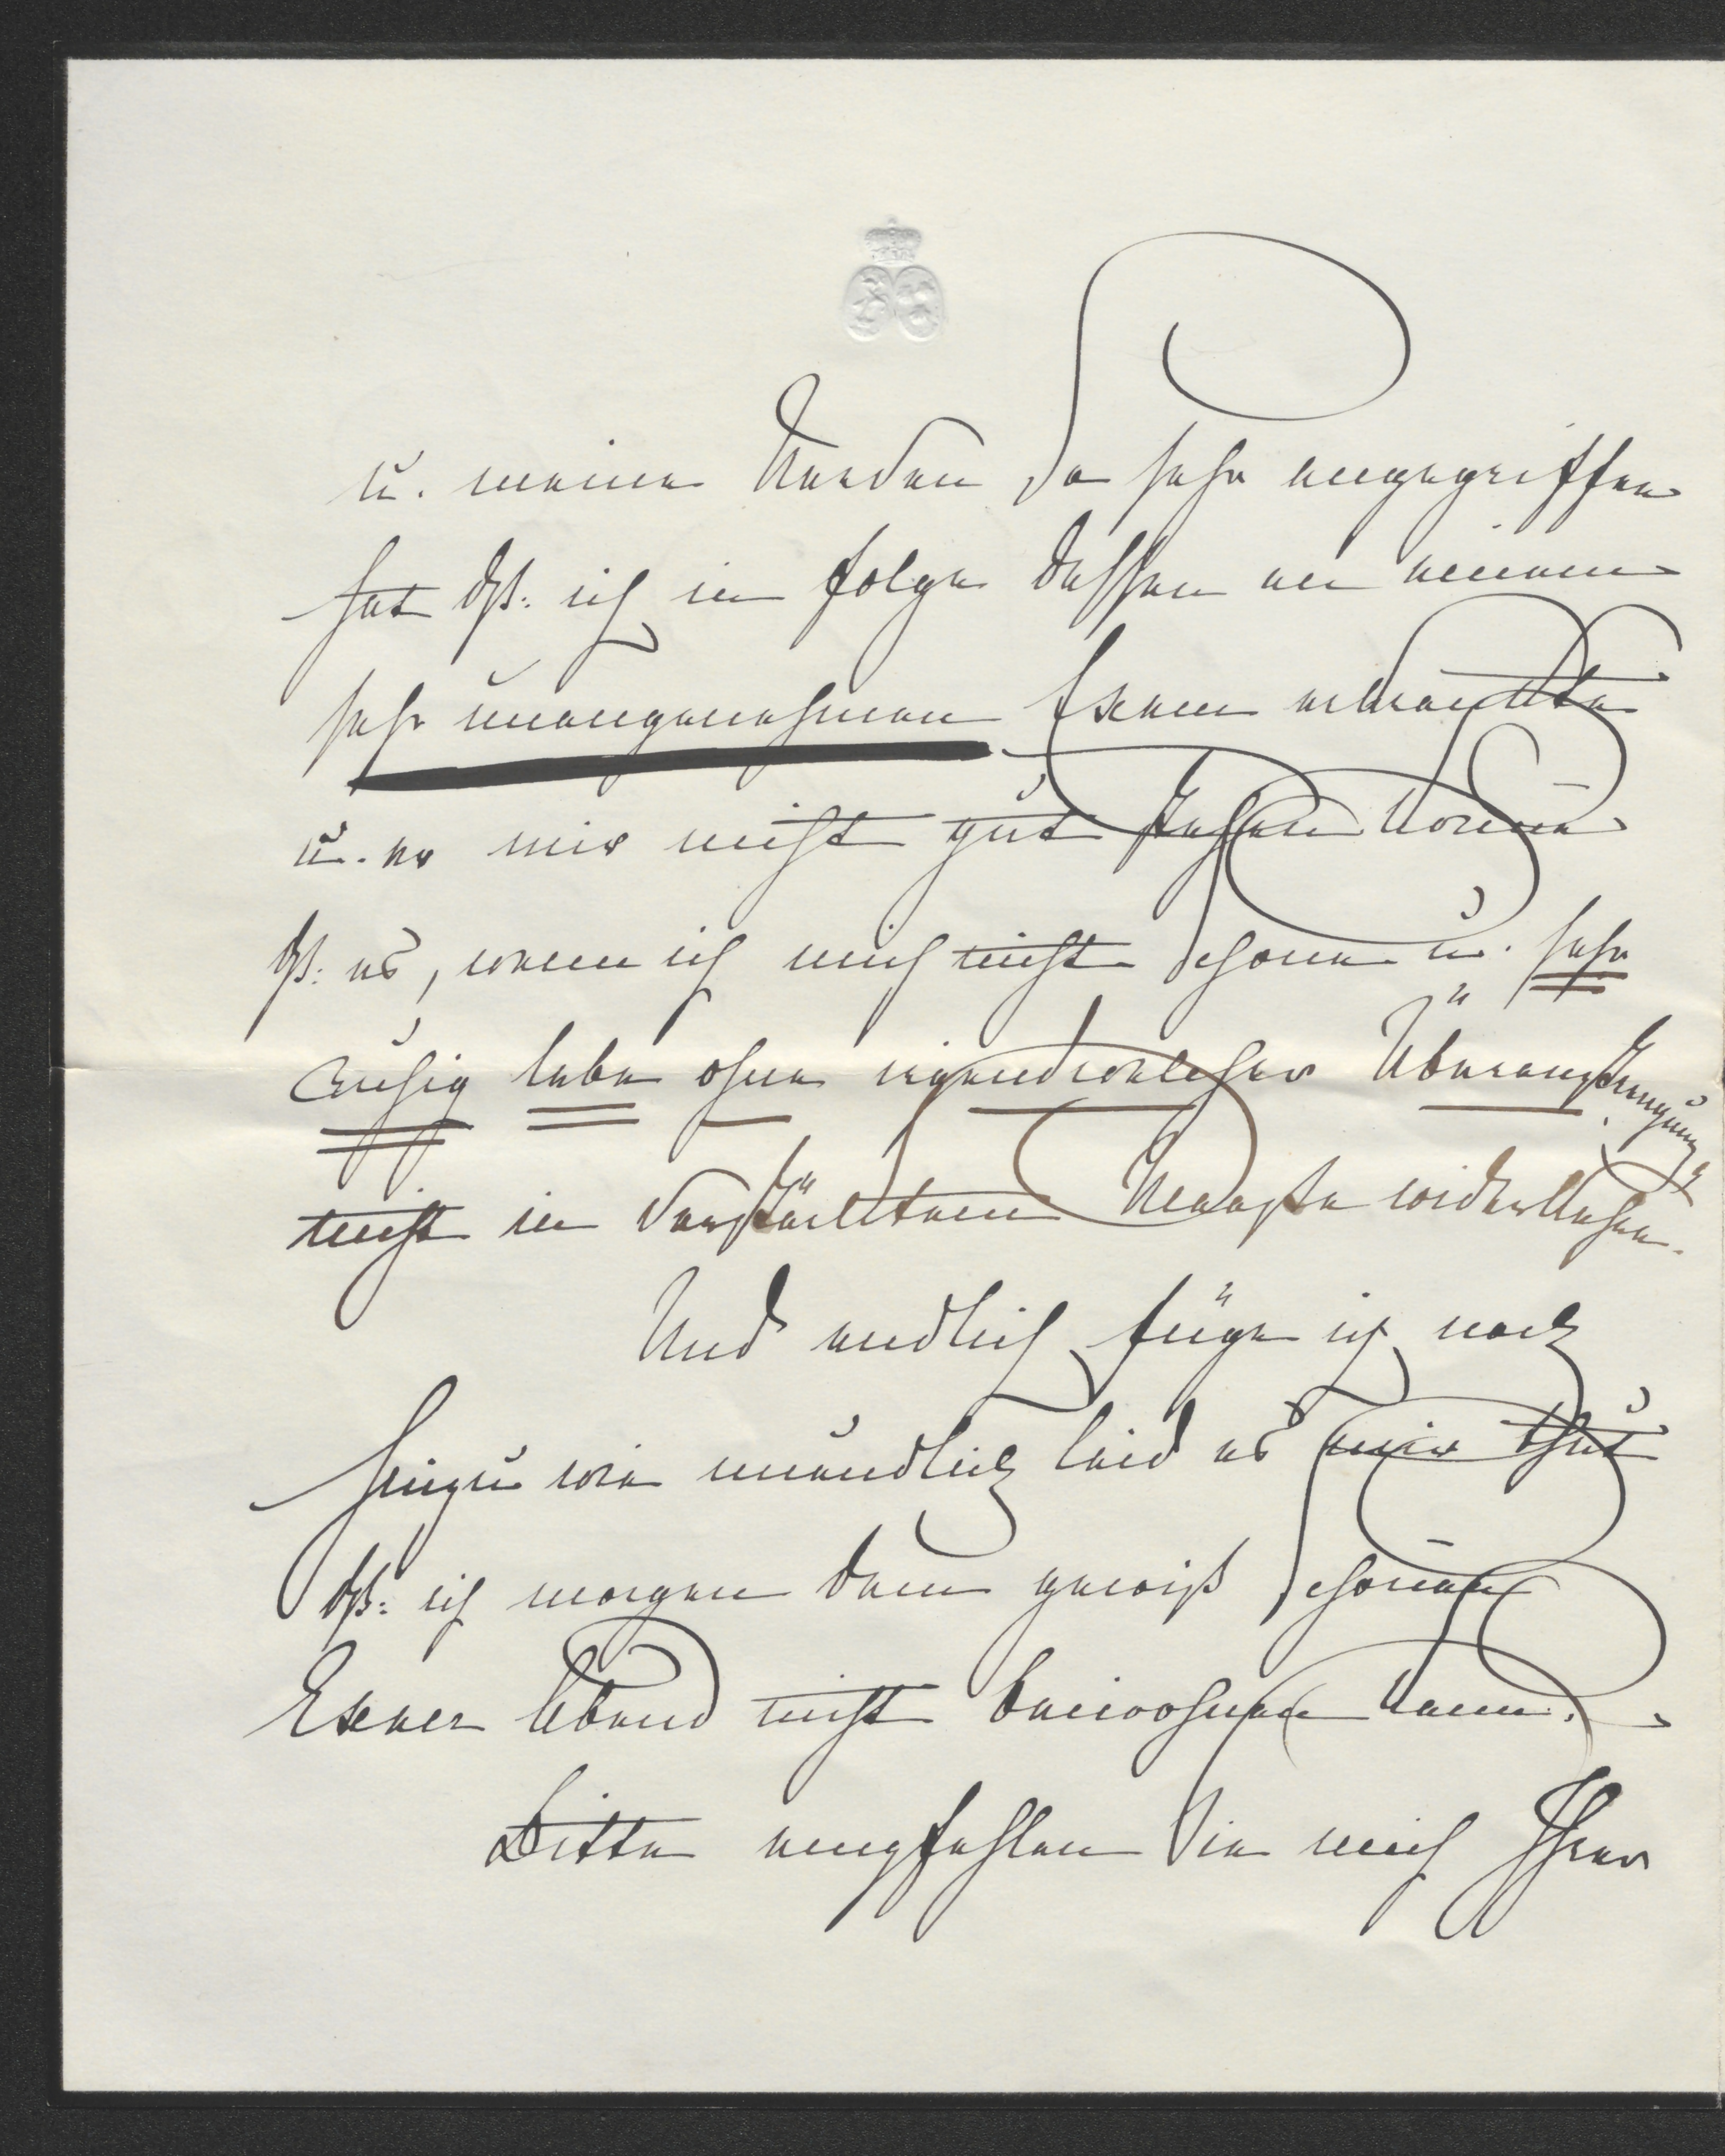 u. meine Nerven so sehr angegriffen
hat dß: ich in folge dessen an einem
sehr unangenehmen Exem erkrankte
u. er mir nicht gut stehen könne
dß: es, wenn ich mich nicht schone u. sehr
ruhig lebe ohne irgendwelcher Überanstrengung
nicht in verstärktem Maaße widerkehre.
Und endlich füge ich noch
hinzu wie unendlich leid es mir thut
dß: ich morgen dem gewiß schönen
Exner Abend nicht beiwohnen kann.
Bitte empfehlen Sie mich Ihrer